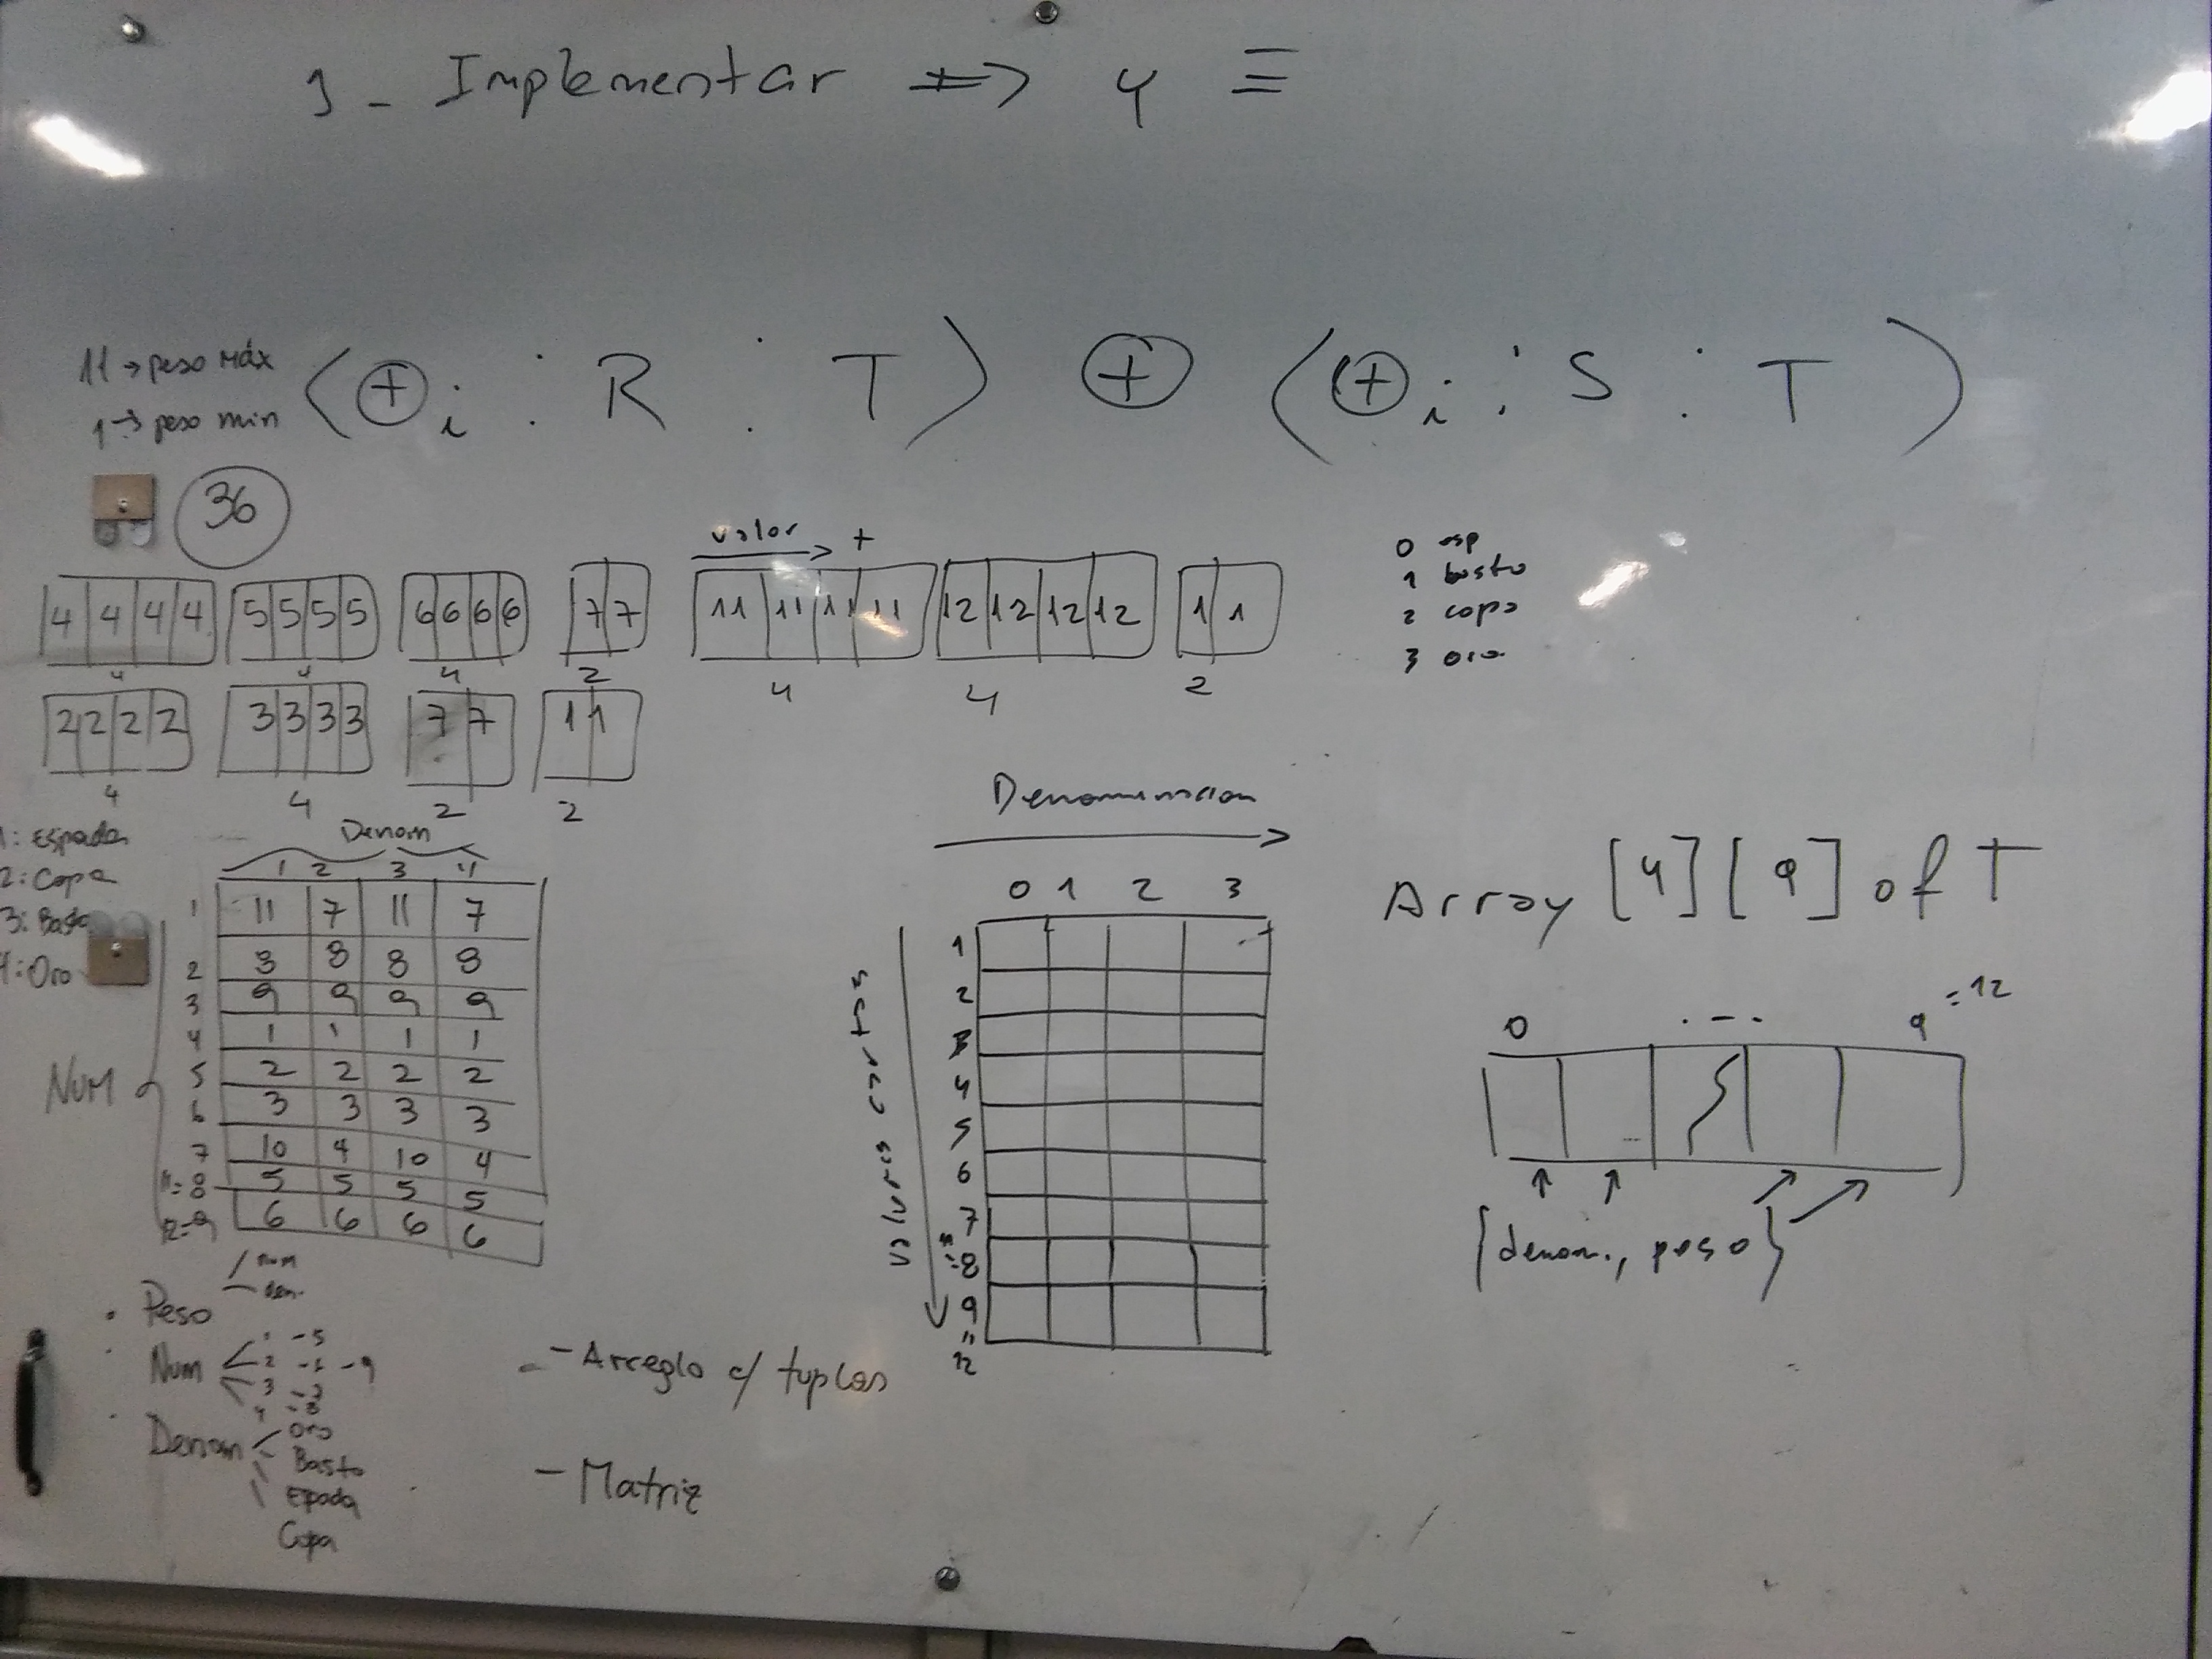 1 - Implementar => y ≡
11 → peso Máx
1 → peso min
⟨ ⊕ i : R : T ⟩ ⊕ ⟨ ⊕ i : S : T ⟩
36
valor → +
4 4 4 4 5 5 5 5 6 6 6 6 7 7 11 11 11 11 12 12 12 12 1 1
4 4 4 2 4 4 2
2 2 2 2 3 3 3 3 7 7 1 1
4 4 2 2
0 esp
1 basto
2 copa
3 oro
1: Espada
2: Copa
3: Basto
4: Oro
Denom
1 2 3 4
1 11 7 11 7
2 8 8 8 8
3 9 9 9 9
4 1 1 1 1
5 2 2 2 2
6 3 3 3 3
7 10 4 10 4
11=8 5 5 5 5
12=9 6 6 6 6
NUM
· Peso
num
den.
· Num
· Denom
Oro
Basto
Epada
Copa
- Arreglo c/ tuplas
- Matriz
Denominacion
0 1 2 3
valores cartas
1
2
3
4
5
6
7
11=8
9
=
12
Array [4][9] of T
0 ... 9 = 12
{denom., peso}